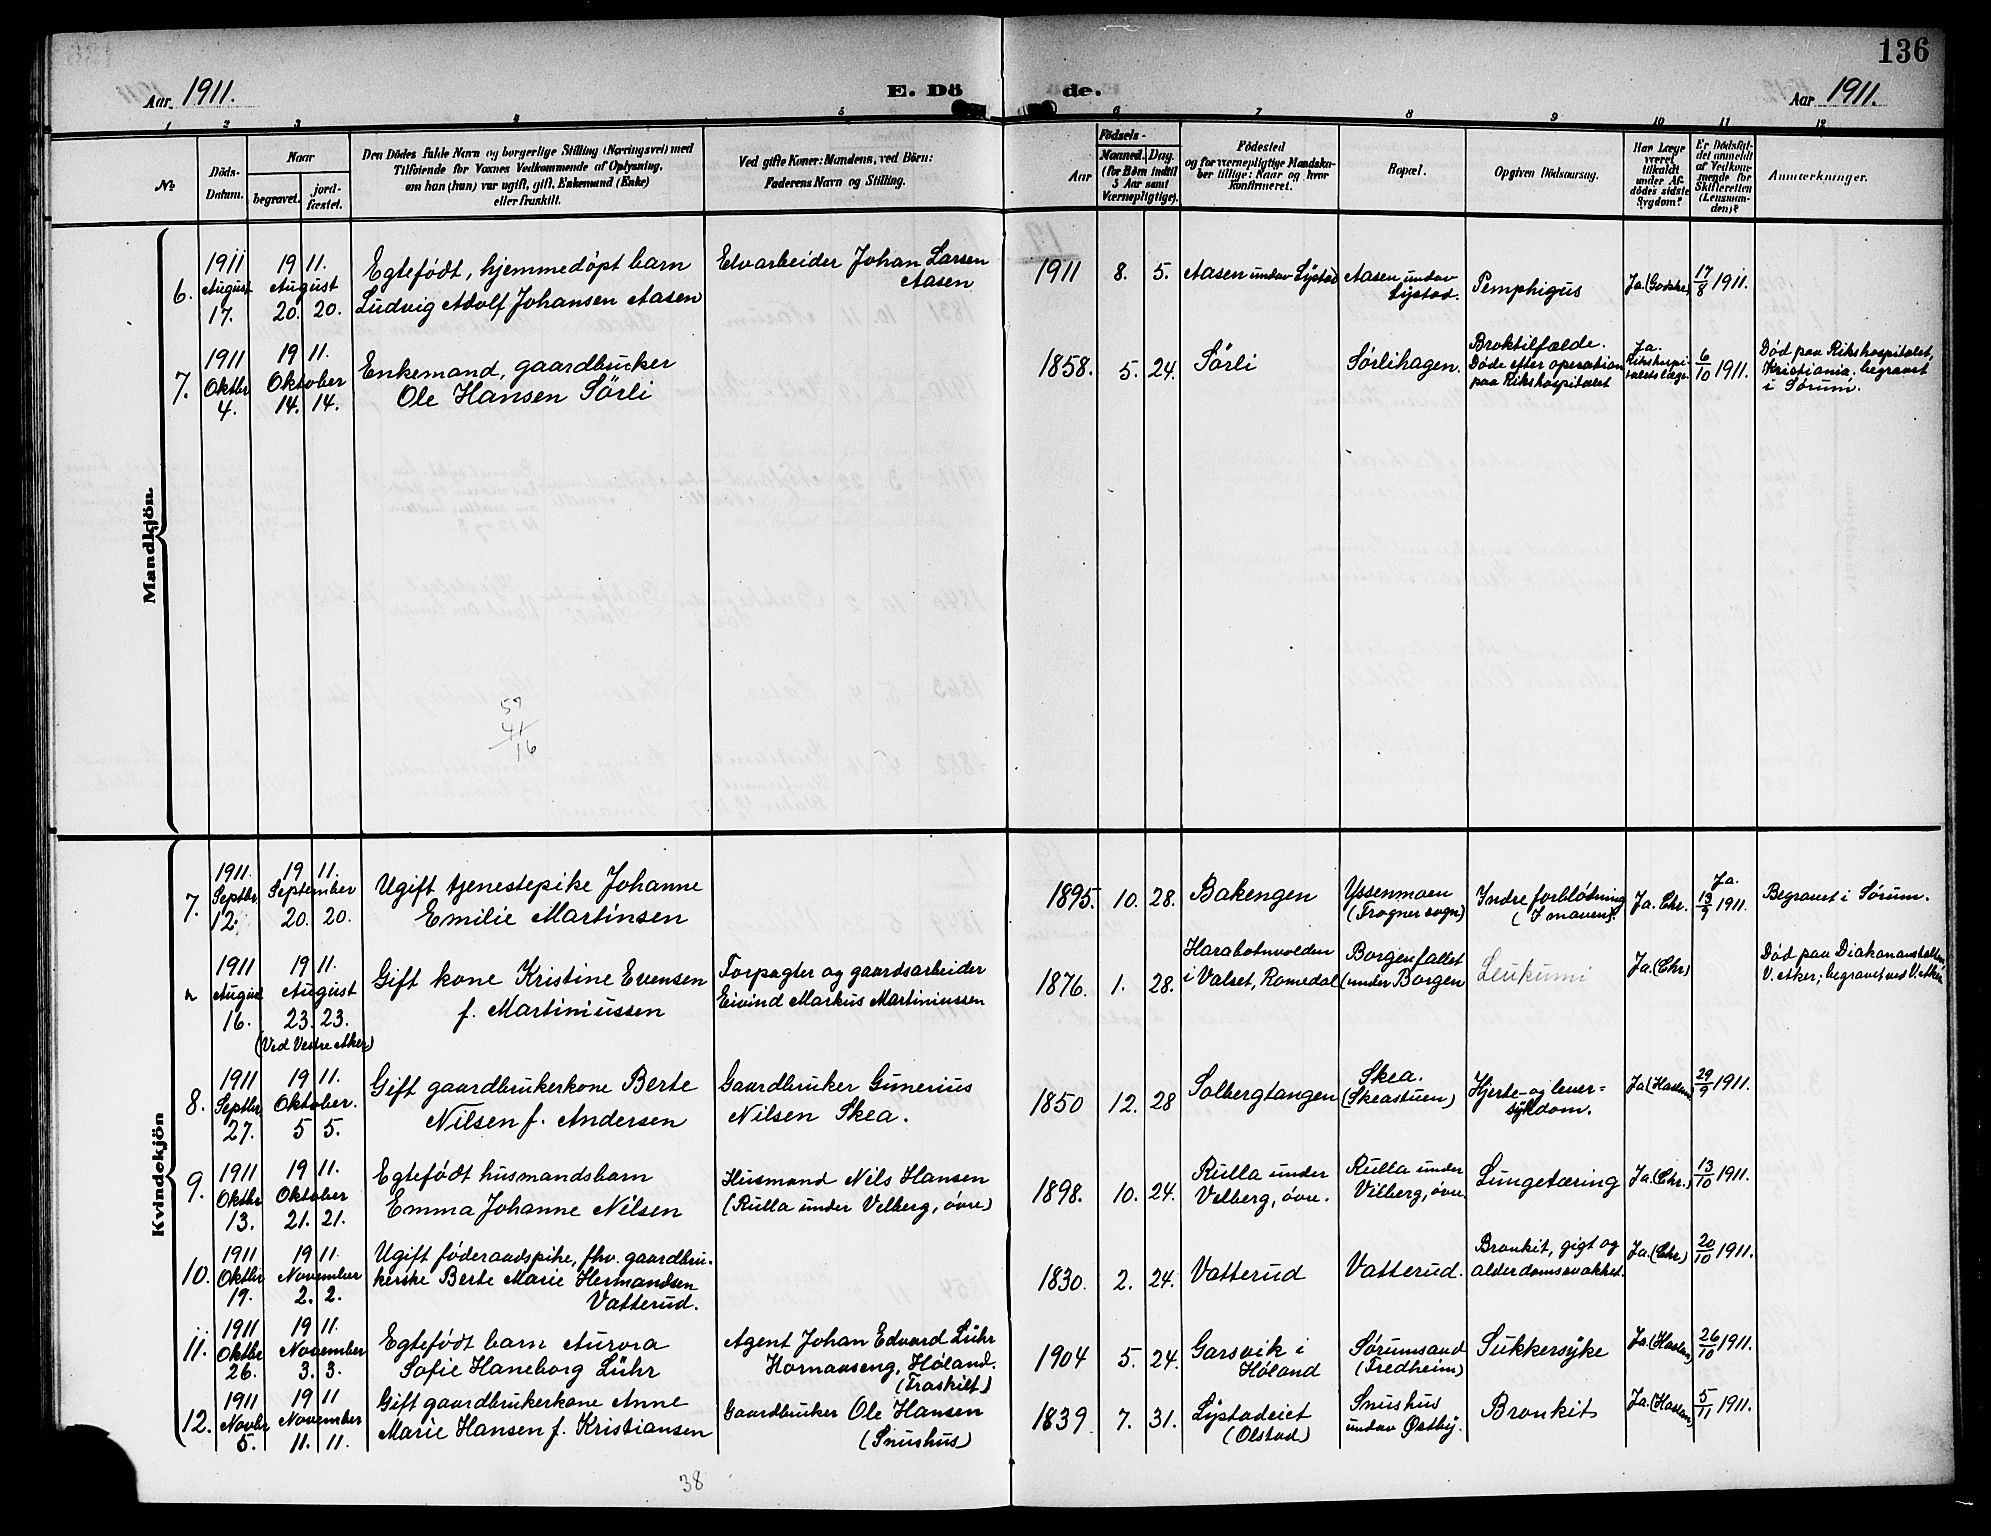 136
Aar. 1911.
E. Dö de.
Aar 1911.
1 2 3 4 5 6 7 8 9 10 11 12
№
Döds-
Datum.
Naar
begravet.
jord-
fæstet.
Den Dödes fulde Navn og borgerlige Stilling (Næringsvei) med
Tilföiende for Voxnes Vedkommende af Oplysning,
om han (hun) var ugift, gift, Enkemand (Enke)
eller fraskilt.
Ved gifte Koner: Mandens, ved Börn:
Faderens Navn og Stilling.
Födsels-
Aar
Maaned. Dag.
(for Börn indtil
5 Aar samt
Værnepligtige).
Födested
og for værnepligtige Mandska-
ber tillige: Naar og hvor
Konfirmeret.
Bopæl.
Opgiven Dödsaarsag.
Har Læge
været
tilkaldt
under Af-
dödes sidste
Sygdom?
Er Dödsfal-
det anmeldt
af Vedkom-
mende for
Skifteretten
(Lensman-
den)?
Anmærkninger.
Mandkjön.
6.
1911
August
17.
19 11.
August
20. 20.
Egtefödt, hjemmedöpt barn
Ludvig Adolf Johansen Aasen
Elvarbeider Johan Larsen
Aasen
1911 8. 5.
Aasen under Lystad
Aasen under
Lystad.
Pemphigus
Ja. (Godske)
17/8 1911.
7.
1911
Oktbr
4.
19 11.
Oktober
14. 14.
Enkemand, gaardbruker
Ole Hansen Sörli
1858. 5. 24.
Sörli
Sörlihagen.
Broktilfælde.
Döde efter operation
paa Rikshospitalet
Ja.
Rikshospi-
talets læge.
6/10 1911.
Död paa Rikshospitalet,
Kristiania. begravet
i Sörum.
59
41
16
Kvindekjön
7.
1911.
Septbr.
12.
19 11.
September
20. 20.
Ugift tjenestepike Johanne
Emilie Martinsen
1895. 10. 28.
Bakengen
Yssenmoen
(Frogner sogn)
Indre forblödning
(I maven).
Ja. Chr.
Ja.
13/9 1911.
Begravet i Sörum.
1911
August
16.
19 11.
August
23. 23.
(Ved Vestre Aker)
Gift kone Kristine Evensen
f. Martiniussen
Forpagter og gaardsarbeider
Eivind Markus Martiniussen
1876. 1. 28.
i Valset, Romedal
Borgenfallet
(under Borgen
Leukumi
Ja. (Chr)
Död paa Diakonanstalten
V. Aker; begravet ved V. Aker
8.
1911
Septbr
27.
19 11.
Oktober.
5 5.
Gift gaardbrukerkone Berte
Nilsen f. Andersen
Gaardbruker Gunerius
Nilsen Skea.
1850 12. 28
Solbergtangen
Skea.
(Skeastuen)
Hjerte- og lever-
sykdom.
Ja (Haslum
29/9 1911.
9.
1911
Oktbr
13.
19 11.
Oktober
21. 21.
Egtefödt husmandsbarn
Emma Johanne Nilsen
Husmand Nils Hansen
(Rulla under Velberg, övre)
1898. 10. 24.
Rulla under
Velberg, övre.
Rulla under
Vilberg, övre
Lungetæring
Ja. (Chr.)
13/10 1911.
10.
1911
Oktbr
19.
19 11.
November
2. 2.
Ugift föderaadspike, fhv. gaardbru-
kerske Berte Marie Hermandsen
Vatterud.
1830. 2. 24.
Vatterud
Vatterud.
Bronkit, gigt og
alderdomssvakhet.
Ja. (Chr)
20/10 1911.
11.
1911
Oktbr
26.
19 11.
November
3. 3.
Egtefödt barn Aurora
Sofie Haneborg Lühr
Agent Johan Edvard Lühr
Hornaaseng, Höland.
(Fraskilt)
1904 5. 24.
Garsvik i
Höland
Sörumsand
(Fredheim)
Sukkersyke
Ja. (Haslum)
26/10 1911.
12.
1911
Novbr
5.
19 11
November
11. 11.
Gift gaardbrukerkone Anne
Marie Hansen f. Kristiansen
Gaardbruker Ole Hansen
(Snushus)
1839 7. 31.
Lystadeiet
(Olstad)
Snushus
under Østby.
Bronkit
Ja. (Haslum)
5/11 1911.
38